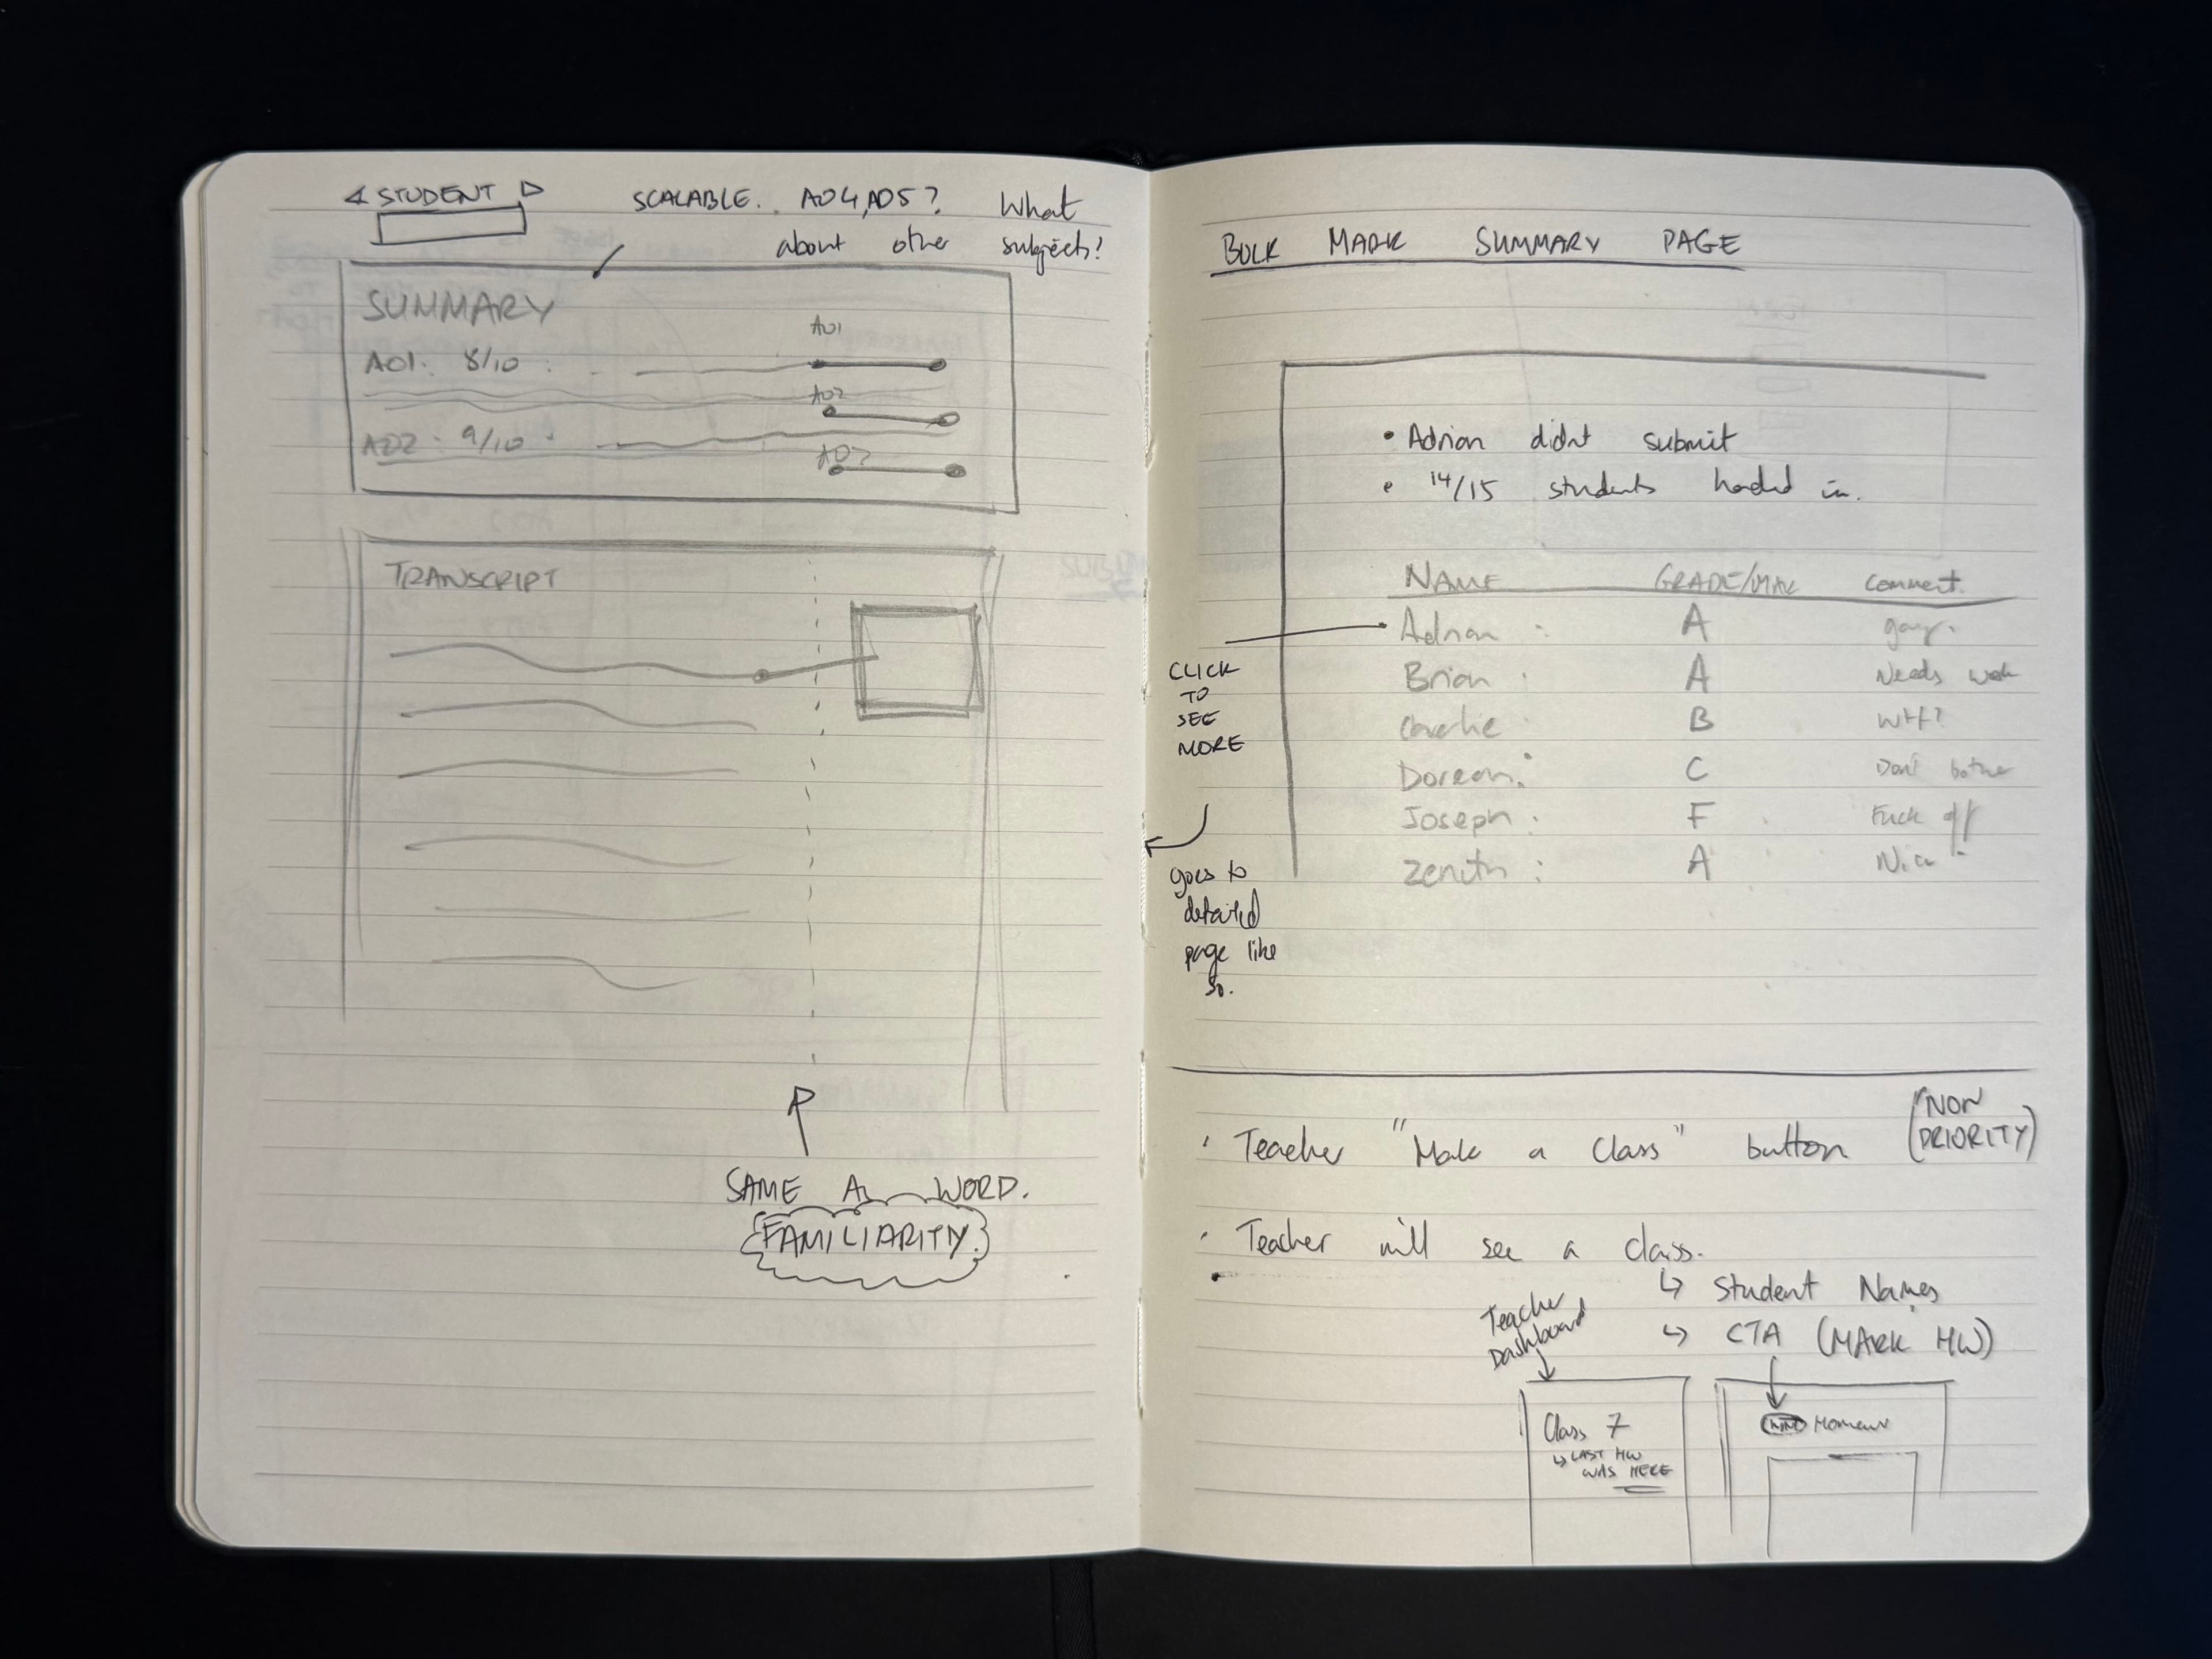 ◁ STUDENT ▷
SCALABLE. AO4, AO5? What
about other subjects?
SUMMARY
AO1
AO1: 8/10
AO2
AO2: 9/10
TRANSCRIPT
SAME AS WORD.
FAMILIARITY.
BULK MARK SUMMARY PAGE
• Adrian didnt submit
• 14/15 students handed in.
NAME GRADE/MAK Comment.
Adrian : A
Brian : A Needs work
Charlie B WTF?
Doreen : C Don't bother
Joseph : F Fuck off
Zenith : A Nice
CLICK
TO
SEE
MORE
goes to
detailed
page like
so.
• Teacher "Make a Class" button (NON
PRIORITY)
• Teacher will see a class.
↳ Student Names
↳ CTA (MARK HW)
Teacher
Dashboard
Class 7
↳ LAST HW
WAS HERE